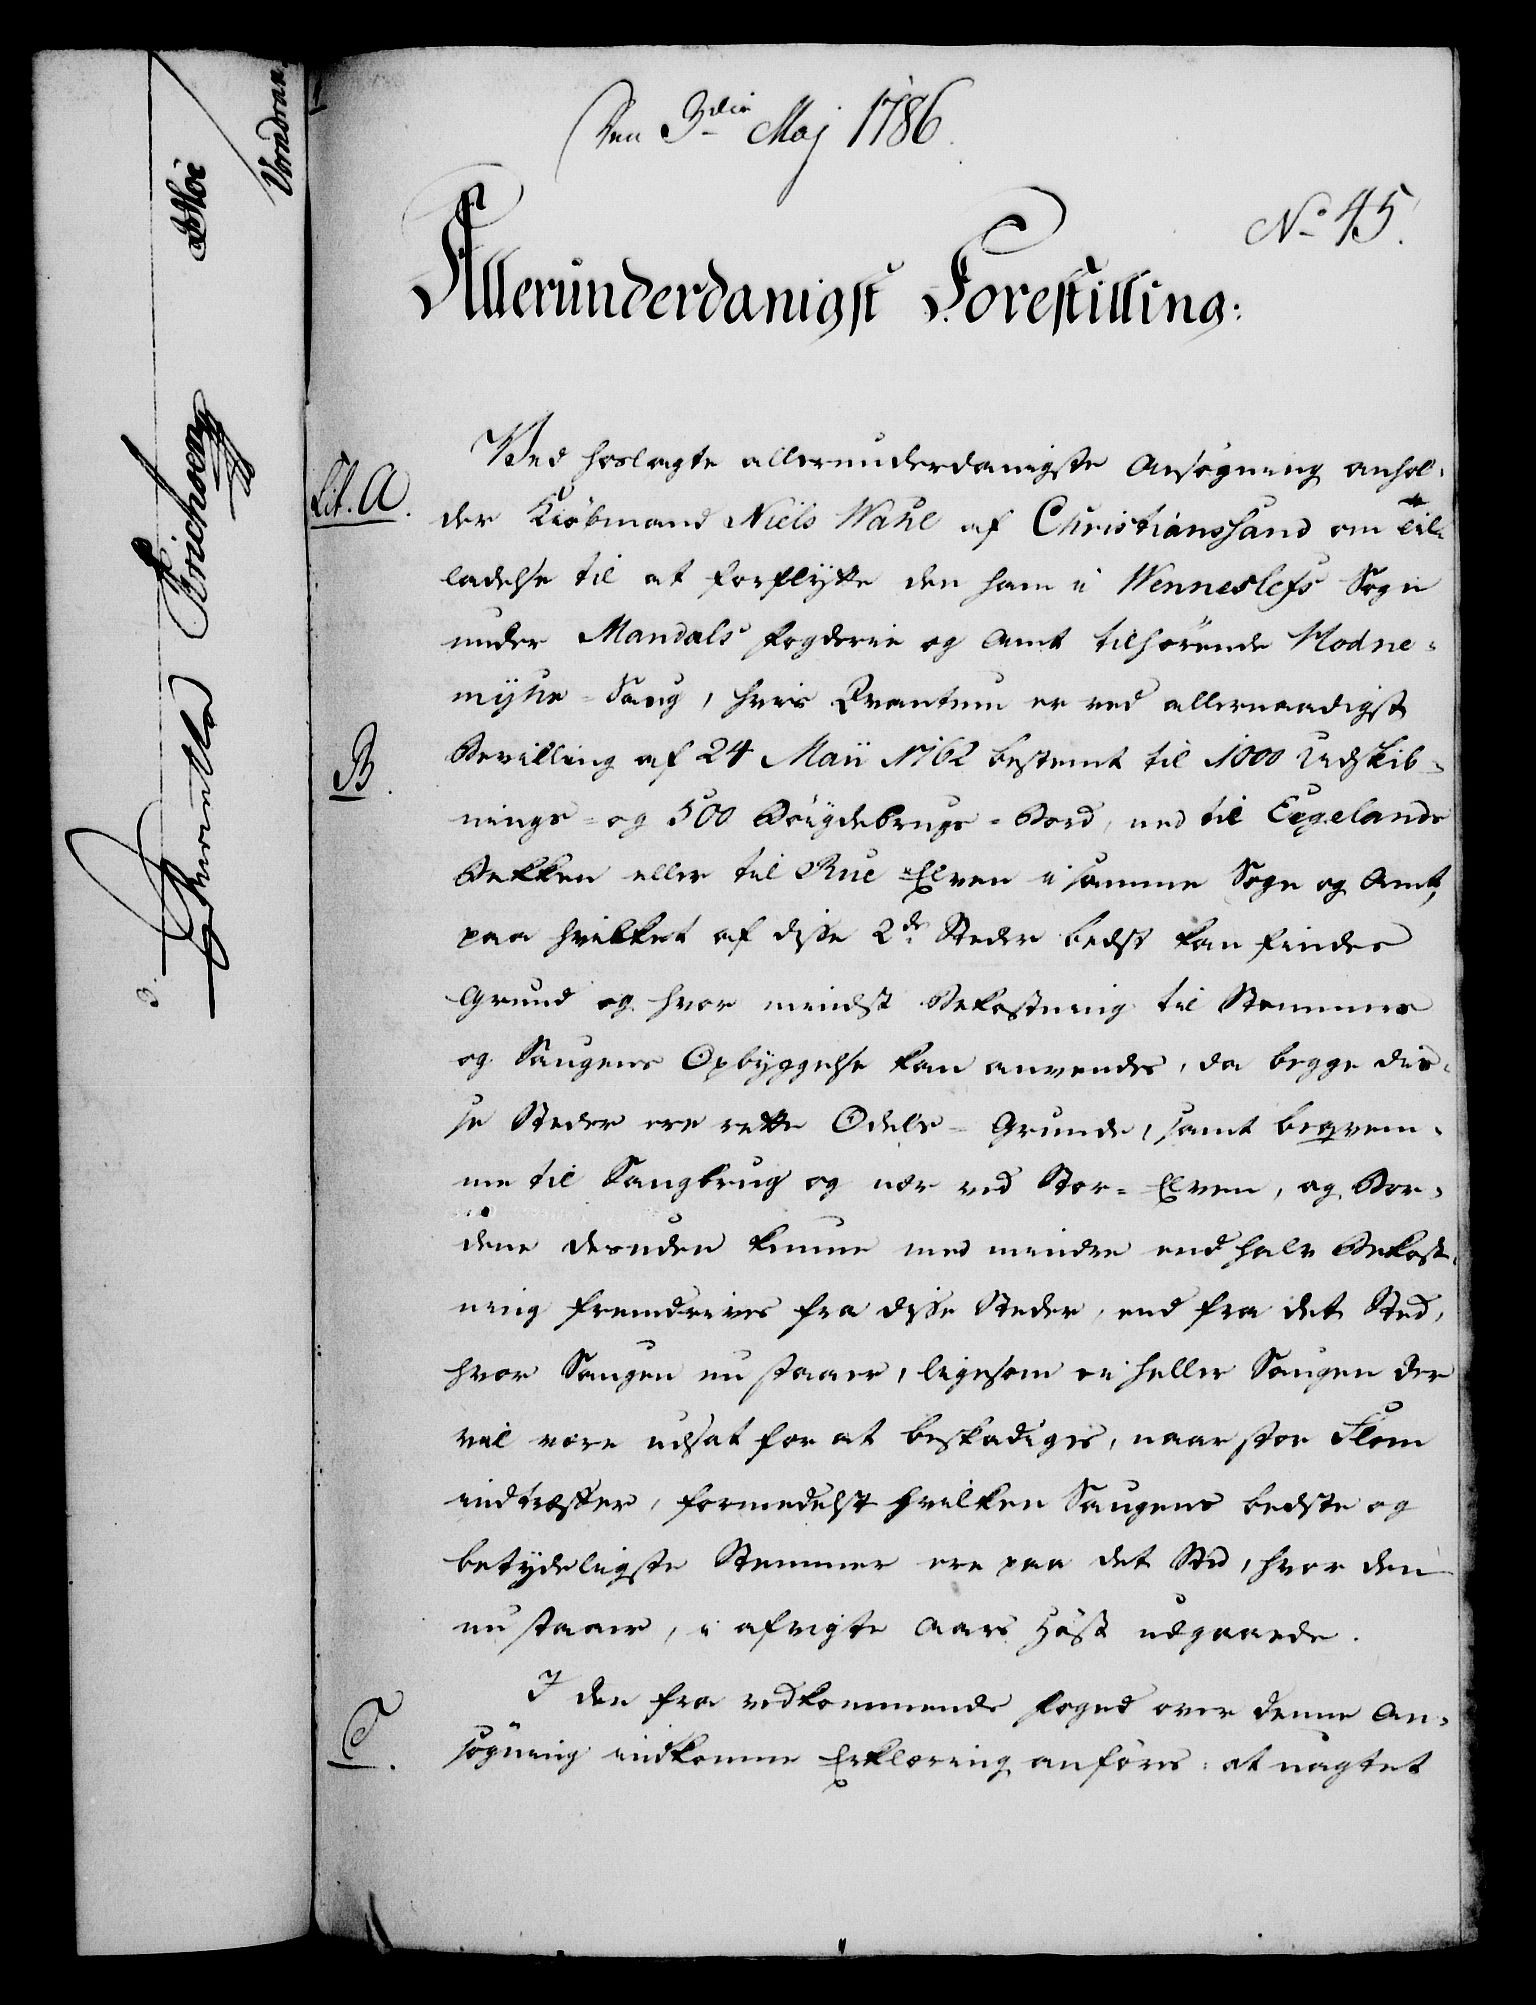 Den 3die Maj 1786.
No 45.
Allerunderdanigst Forestilling:
Lit. A.
Ved hoslagte allerunderdanigste Ansøgning anhol-
der Kiöbmand Niels Wahl af Christianssand om Til-
ladelse til at forflytte den ham i Wenneslefs Sogn
under Mandals Fogderie og Amt tilhörende
Saug, hvis Qvantum er ved allernaadigst
B.
Bevilling af 24 Maii 1762 bestemt til 1000 Udskib-
nings- og 500 Böigdebrugs-Bord, ned til Eegelands
Bekken eller til Rue Elven i samme Sogn og Amt,
paa hvilket af disse 2de Steder bedst kan findes
Grund og hvor mindst Bekostning til Stemmers
og Saugens Opbyggelse kan anvendes, da begge dis-
se Steder ere rette Odels-Grunde, samt beqvem-
me til Saugbrug og nær ved Stor-Elven, og Bor-
dene desuden kunne med mindre end halv Bekost-
ning fremdrives fra disse Steder, end fra det Sted,
hvor Saugen nu staaer, ligesom ei heller Saugen der
vil være udsat for at beskadiges, naar stor Flom
indtræffer, formedelst hvilken Saugens bedste og
betydeligste Stemmer ere paa det Sted, hvor den
nu staaer, i afvigte Aars Höst udgaaede.
C.
I den fra vedkommende Foged over denne An-
søgning indkomne Erklæring anføres: at uagtet